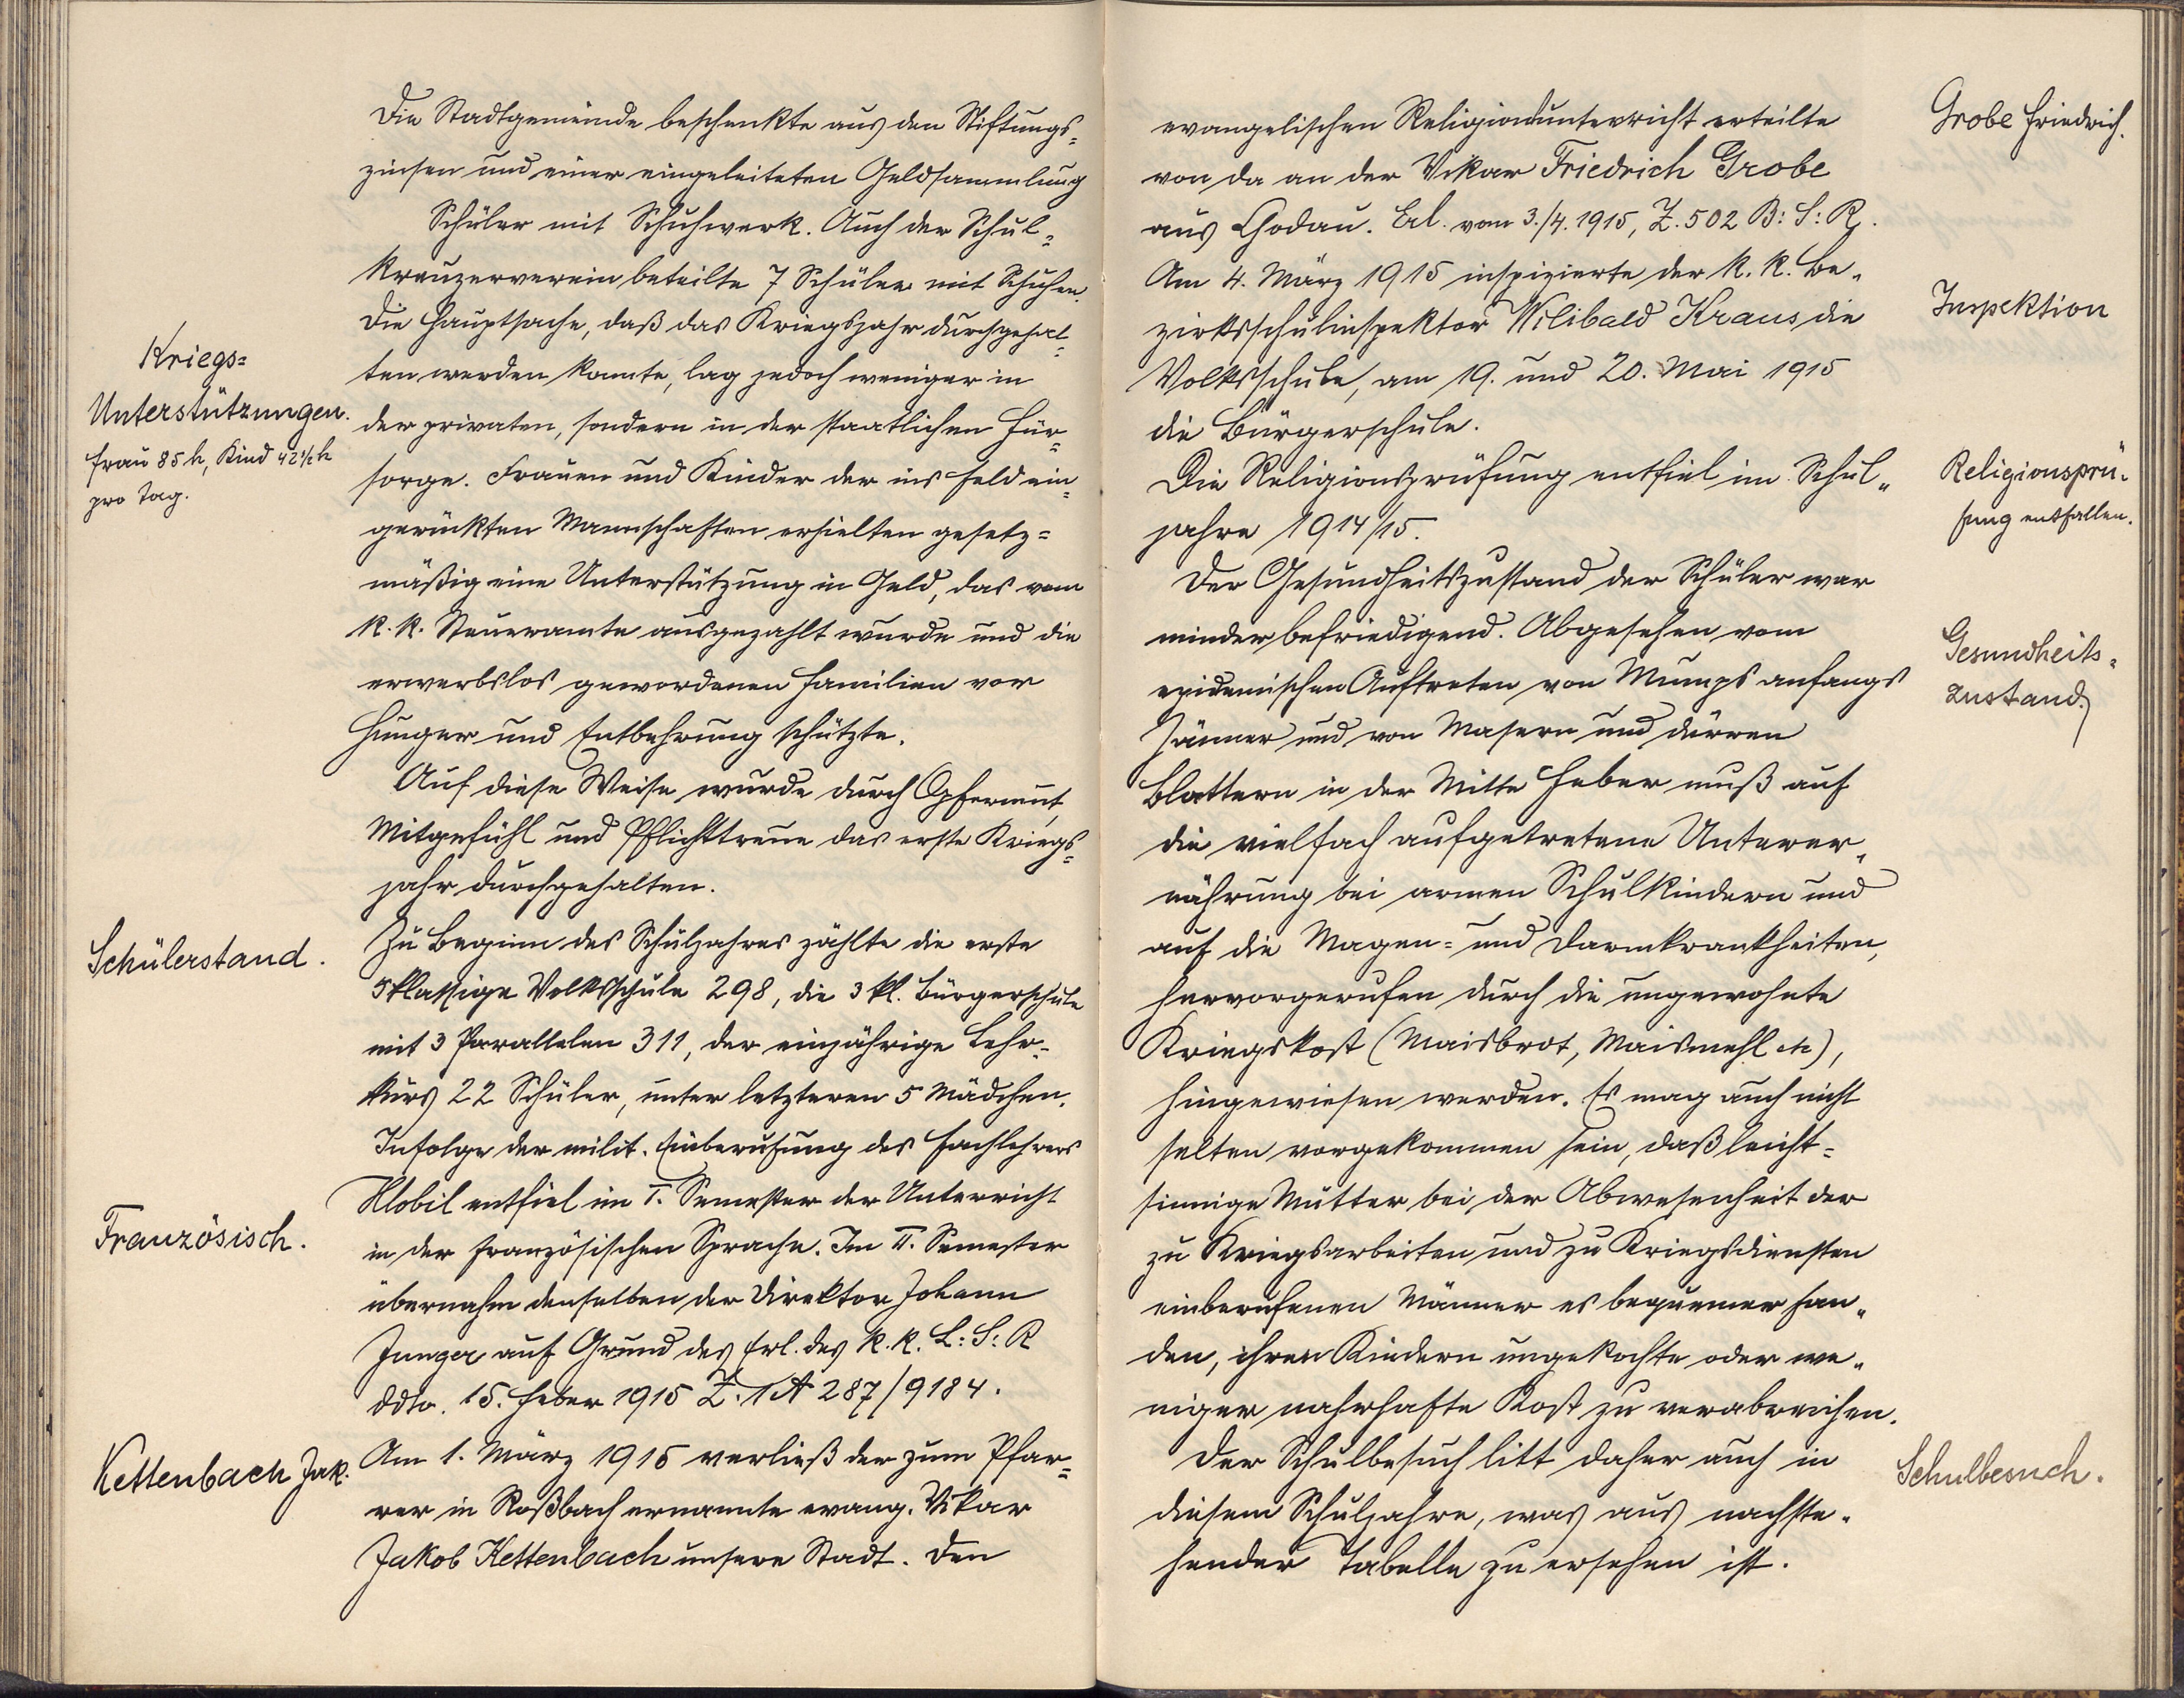 Die Stadtgemeinde beschenkte aus den Stiftungs=
zinsen und einer eingeleiteten Geldsammlung
Schüler mit Schuhwerk. Auch der Schul=
kreuzerverein beteilte 7 Schüler mit Schuhen.
Die Hauptsache, daß das Kriegsjahr durchgehal=
ten werden konnte, lag jedoch weniger in
der privaten, sondern in der staatlichen Für=
sorge. Frauen und Kinder der ins Feld ein=
gerückten Mannschaften erhielten gesetz=
mäßig eine Unterstützung in Geld, das vom
k. k. Steueramte ausgezahlt wurde und die
erwerbslos gewordenen Familien vor
Hunger und Entbehrung schützte.
Auf diese Weise wurde durch Opfermut,
Mitgefühl und Pflichttreue das erste Kriegs=
jahr durchgehalten.
Zu Beginn des Schuljahres zählte die erste
5klassige Volksschule 298, die 3 kl. Bürgerschule
mit 3 Parallelen 311, der einjährige Lehr=
kurs 22 Schüler, unter letzteren 5 Mädchen.
Infolge der milit. Einberufung des Fachlehrers
Klobil entfiel im I. Semester der Unterricht
in der französischen Sprache. Im II. Semester
übernahm denselben der Direktor Johann
Junger auf Grund des Erl. des k. k. L: S: R
ddto. 15. Feber 1915 Z. 1A 287/9184.
Am 1. März 1915 verließ der zum Pfar=
rer in Roßbach ernannte evang. Vikar
Jakob Kettenbach unsere Stadt. Den
Kriegs=
Unterstützungen.
Frau 85 h, Kind 42 1/2 h
pro Tag.
Schülerstand.
Französisch.
Kettenbach Jak.
evangelischen Religionsunterricht erteilte
von da an der Vikar Friedrich Grobe
aus Chodau. Erl. vom 3./4. 1915, Z. 502 B: S: R.
Am 4. März 1915 inspizierte der k. k. Be„
zirksschulinspektor Wilibald Kraus die
Volksschule, am 19. und 20. Mai 1915
die Bürgerschule.
Die Religionsprüfung entfiel im Schul„
jahre 1914/15.
Der Gesundheitszustand der Schüler war
minder befriedigend. Abgesehen vom
epidemischen Auftreten von Mumps anfangs
Jänner und von Masern und dürren
Blattern in der Mitte Feber muß auf
die vielfach aufgetretene Unterer„
nährung bei armen Schulkindern und
auf die Magen= und Darmkrankheiten,
hervorgerufen durch die ungewohnte
Kriegskost (Maisbrot, Maismehl etc),
hingewiesen werden. Es mag auch nicht
selten vorgekommen sein, daß leicht=
sinnige Mütter bei der Abwesenheit der
zu Kriegsarbeiten und zu Kriegsdiensten
einberufenen Männer es bequemer fan„
den, ihren Kindern ungekochte oder we„
niger nahrhafte Kost zu verabreichen.
Der Schulbesuch litt daher auch in
diesem Schuljahre, was aus nachste„
hender Tabelle zu ersehen ist.
Grobe Friedrich.
Inspektion
Religionsprü„
fung entfallen.
Gesundheits„
zustand.
Schulbesuch.